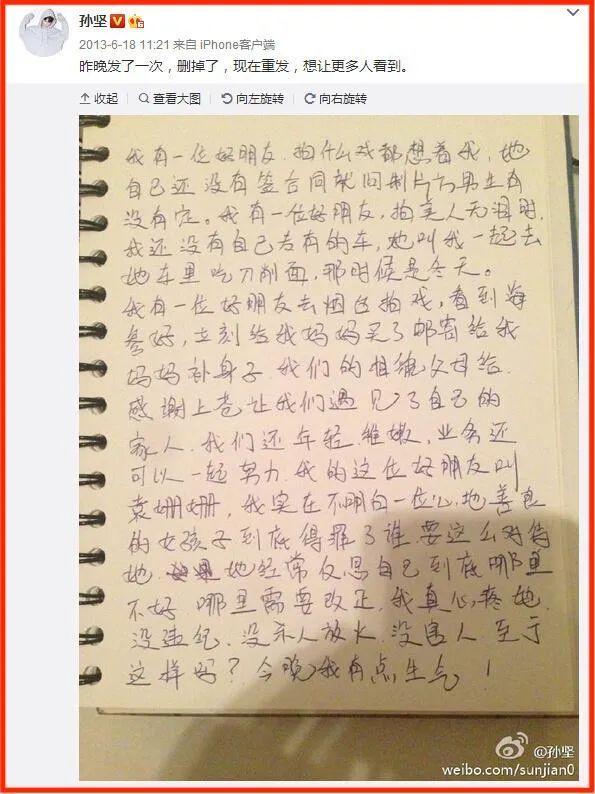 孙坚
2013-6-18 11:21 来自 iPhone客户端
昨晚发了一次，删掉了，现在重发，想让更多人看到。
收起 查看大图 向左旋转 向右旋转
我有一位好朋友，拍什么戏都想着我，她
自己还没有签合同就问制片方男生有
没有定。我有一位好朋友，拍美人无泪时，
我还没有自己专有的车，她叫我一起去
她车里吃刀削面，那时候是冬天。
我有一位好朋友去烟台拍戏，看到海
参好，立刻给我妈妈买了邮寄给我
妈妈补身子。我们的相貌父母给，
感谢上苍让我们遇见了自己的
家人，我们还年轻稚嫩，业务还
可以一起努力，我的这位好朋友叫
袁姗姗，我实在不明白一位心地善良
的女孩子到底得罪了谁，要这么对待
她 她经常反思自己到底哪里
不好 哪里需要改正，我真心疼她，
没违纪，没杀人放火，没害人，至于
这样吗？今晚我有点生气！
@孙坚
weibo.com/sunjian0